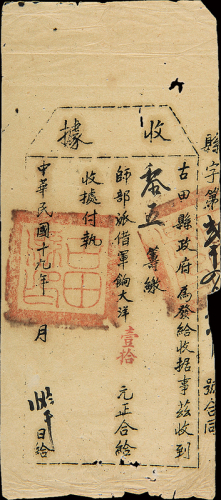 縣字第 號合同
收據
古田縣政府為發給收据事茲收到
籌繳
師部派借軍餉大洋壹拾元正合給
收據付執
中華民國十九年 月 日給